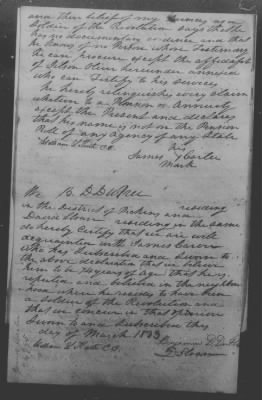 and their belief of my Services as a
Soldier of the Revolution Says that he
has no documentary evidence and that
he knows of no Person whose Testimony
he can procure except the affidavit
of hereunder annexed
who can Testify to his Services
he hereby relinquishes every claim
whatever to a Pension or Annuity
except the Present and declares
that his name is not on the Pension
Roll of any agency of any State
his
James X Carter
Mark
We B. D. residing
in the District of Pickens and
David residing in the same
do hereby Certify that we are well
acquainted with James
who has Subscribed and Sworn to
the above declaration that we believe
him to be 74 years of age that he is
reputed and believed in the neighbor
hood where he resides to have been
a Soldier of the Revolution and
that we concur in that opinion
Sworn to and Subscribed this
day of March 1833
Benjamin D.